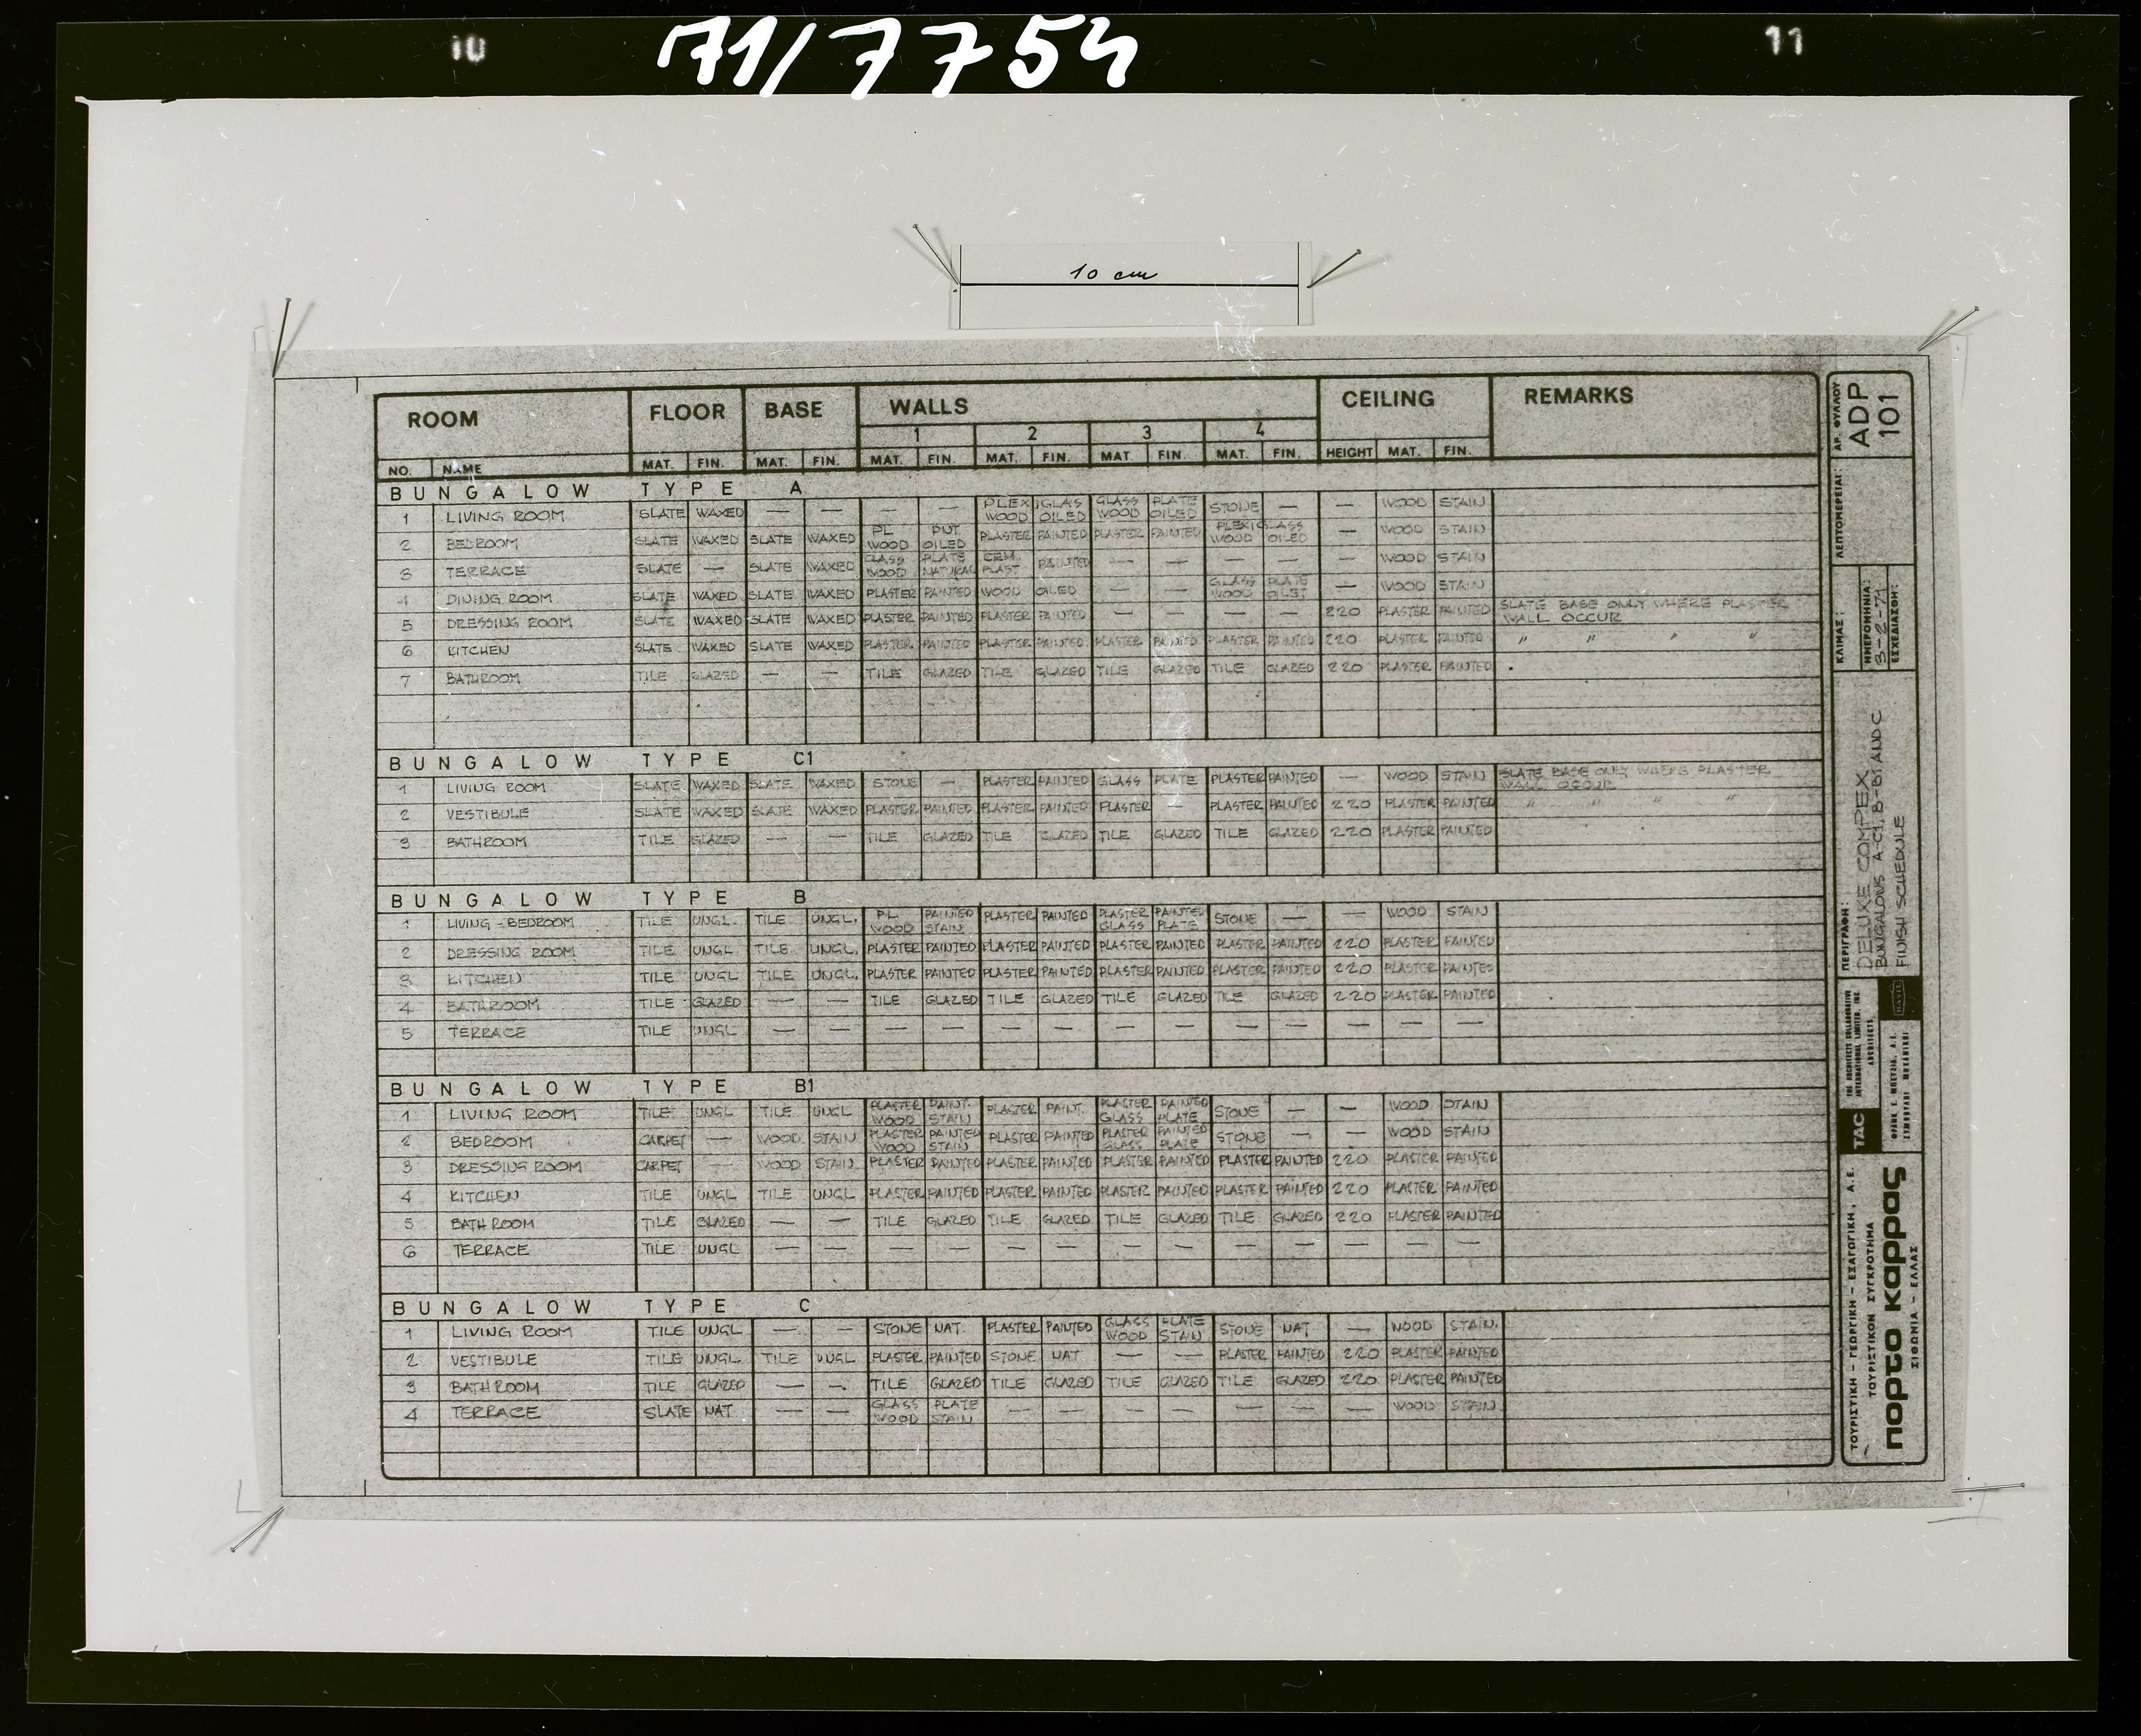 10 71/7754 11
10 cm
ROOM FLOOR BASE WALLS CEILING REMARKS
1 2 3 4
NO. NAME MAT. FIN. MAT. FIN. MAT. FIN. MAT. FIN. MAT. FIN. MAT. FIN. HEIGHT MAT. FIN.
BUNGALOW TYPE A
PLEXIGLAS GLASS PLATE
1 LIVING ROOM SLATE WAXED — — — — WOOD OILED WOOD OILED STONE — — WOOD STAIN
PL PNT. PLEXIGLASS
2 BEDROOM SLATE WAXED SLATE WAXED WOOD OILED PLASTER PAINTED PLASTER PAINTED WOOD OILED — WOOD STAIN
GLASS PLATE CEM.
3 TERRACE SLATE — SLATE WAXED WOOD NATURAL PLAST PAINTED — — — — — WOOD STAIN
GLASS PLATE
4 DINING ROOM SLATE WAXED SLATE WAXED PLASTER PAINTED WOOD OILED WOOD — WOOD STAIN
5 DRESSING ROOM SLATE WAXED SLATE WAXED PLASTER PAINTED PLASTER PAINTED — — — — 220 PLASTER PAINTED SLATE BASE ONLY WHERE PLASTER
WALL OCCUR
6 KITCHEN SLATE WAXED SLATE WAXED PLASTER PAINTED PLASTER PAINTED PLASTER PAINTED PLASTER PAINTED 220 PLASTER PAINTED " " " "
7 BATHROOM TILE GLAZED — — TILE GLAZED TILE GLAZED TILE GLAZED TILE GLAZED 220 PLASTER PAINTED
BUNGALOW TYPE C1
1 LIVING ROOM SLATE WAXED SLATE WAXED STONE — PLASTER PAINTED GLASS PLATE PLASTER PAINTED — WOOD STAIN SLATE BASE ONLY WHERE PLASTER
WALL OCCUR
2 VESTIBULE SLATE WAXED SLATE WAXED PLASTER PAINTED PLASTER PAINTED PLASTER — PLASTER PAINTED 220 PLASTER PAINTED " " " "
3 BATHROOM TILE GLAZED — — TILE GLAZED TILE GLAZED TILE GLAZED TILE GLAZED 220 PLASTER PAINTED
BUNGALOW TYPE B
PL PAINTED PLASTER PAINTED
1 LIVING - BEDROOM TILE UNGL. TILE UNGL. WOOD STAIN PLASTER PAINTED GLASS PLATE STONE — — WOOD STAIN
2 DRESSING ROOM TILE UNGL. TILE UNGL. PLASTER PAINTED PLASTER PAINTED PLASTER PAINTED PLASTER PAINTED 220 PLASTER PAINTED
3 KITCHEN TILE UNGL TILE UNGL. PLASTER PAINTED PLASTER PAINTED PLASTER PAINTED PLASTER PAINTED 220 PLASTER PAINTED
4 BATHROOM TILE GLAZED — — TILE GLAZED TILE GLAZED TILE GLAZED TILE GLAZED 220 PLASTER PAINTED
5 TERRACE TILE UNGL — — — — — — — — — — — — —
BUNGALOW TYPE B1
PLASTER PAINT. PLASTER PAINTED
1 LIVING ROOM TILE UNGL TILE UNGL WOOD STAIN PLASTER PAINT. GLASS PLATE STONE — — WOOD STAIN
PLASTER PAINTED PLASTER PAINTED
2 BEDROOM CARPET — WOOD STAIN WOOD STAIN PLASTER PAINTED GLASS PLATE STONE — — WOOD STAIN
3 DRESSING ROOM CARPET — WOOD STAIN PLASTER PAINTED PLASTER PAINTED PLASTER PAINTED PLASTER PAINTED 220 PLASTER PAINTED
4 KITCHEN TILE UNGL TILE UNGL PLASTER PAINTED PLASTER PAINTED PLASTER PAINTED PLASTER PAINTED 220 PLASTER PAINTED
5 BATH ROOM TILE GLAZED — — TILE GLAZED TILE GLAZED TILE GLAZED TILE GLAZED 220 PLASTER PAINTED
6 TERRACE TILE UNGL — — — — — — — — — — — — —
BUNGALOW TYPE C
GLASS PLATE
1 LIVING ROOM TILE UNGL — — STONE NAT. PLASTER PAINTED WOOD STAIN STONE NAT — WOOD STAIN.
2 VESTIBULE TILE UNGL TILE UNGL PLASTER PAINTED STONE NAT — — PLASTER PAINTED 220 PLASTER PAINTED
3 BATHROOM TILE GLAZED — — TILE GLAZED TILE GLAZED TILE GLAZED TILE GLAZED 220 PLASTER PAINTED
GLASS PLATE
4 TERRACE SLATE NAT — — WOOD STAIN — — — — — — — WOOD STAIN
ΑΡ. ΦΥΛΛΟΥ
ADP
101
ΛΕΠΤΟΜΕΡΕΙΑΙ:
ΚΛΙΜΑΞ:
ΗΜΕΡΟΜΗΝΙΑ:
3-2-71
ΕΣΧΕΔΙΑΣΘΗ:
ΠΕΡΙΓΡΑΦΗ:
DELUXE COMPEX
BUNGALOWS A-C1, B-B1 AND C
FINISH SCHEDULE
TAC
THE ARCHITECTS COLLABORATIVE
INTERNATIONAL LIMITED. INC.
ARCHITECTS
ΣΥΜΒΟΥΛΟΙ ΜΗΧΑΝΙΚΟΙ
ΤΟΥΡΙΣΤΙΚΗ - ΓΕΩΡΓΙΚΗ - ΕΞΑΓΩΓΙΚΗ, Α.Ε.
ΤΟΥΡΙΣΤΙΚΟΝ ΣΥΓΚΡΟΤΗΜΑ
πορτο καρρας
ΣΙΘΩΝΙΑ - ΕΛΛΑΣ